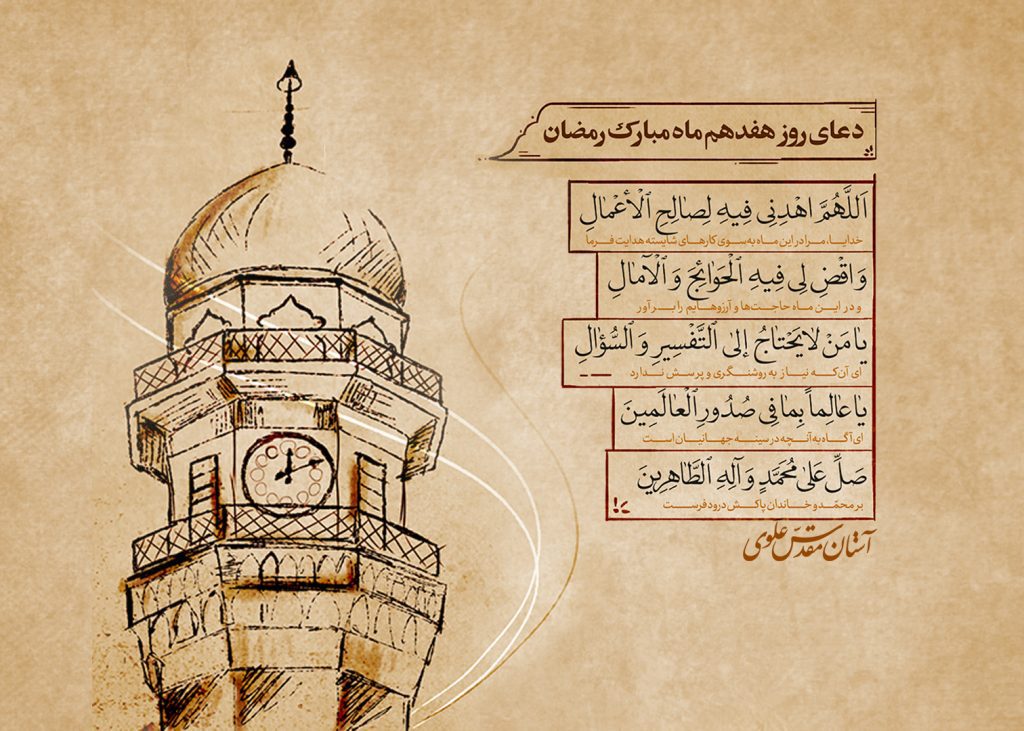 دعای روز هفدهم ماه مبارک رمضان
اَللَّهُمَّ اهْدِنِی فِیهِ لِصالِحِ ٱلْأَعْمالِ
خدایا، مرا در این ماه به سوی کارهای شایسته هدایت فرما
وَ اقْضِ لِی فِیهِ ٱلْحَوَائِجَ وَ ٱلْآمالِ
و در این ماه حاجت‌ها و آرزوهایم را برآور
یا مَنْ لا یَحْتاجُ إلیٰ ٱلتَّفْسِیرِ وَ ٱلسُّؤْالِ
ای آن‌که نیاز به روشنگری و پرسش ندارد
یا عالِماً بِما فِی صُدُورِ ٱلْعالَمِینَ
ای آگاه به آنچه در سینه جهانیان است
صَلِّ عَلیٰ مُحَمَّدٍ وَ آلِهِ ٱلطَّاهِرِینَ
بر محمّد و خاندان پاکش درود فرست
آستان مقدّس علوی